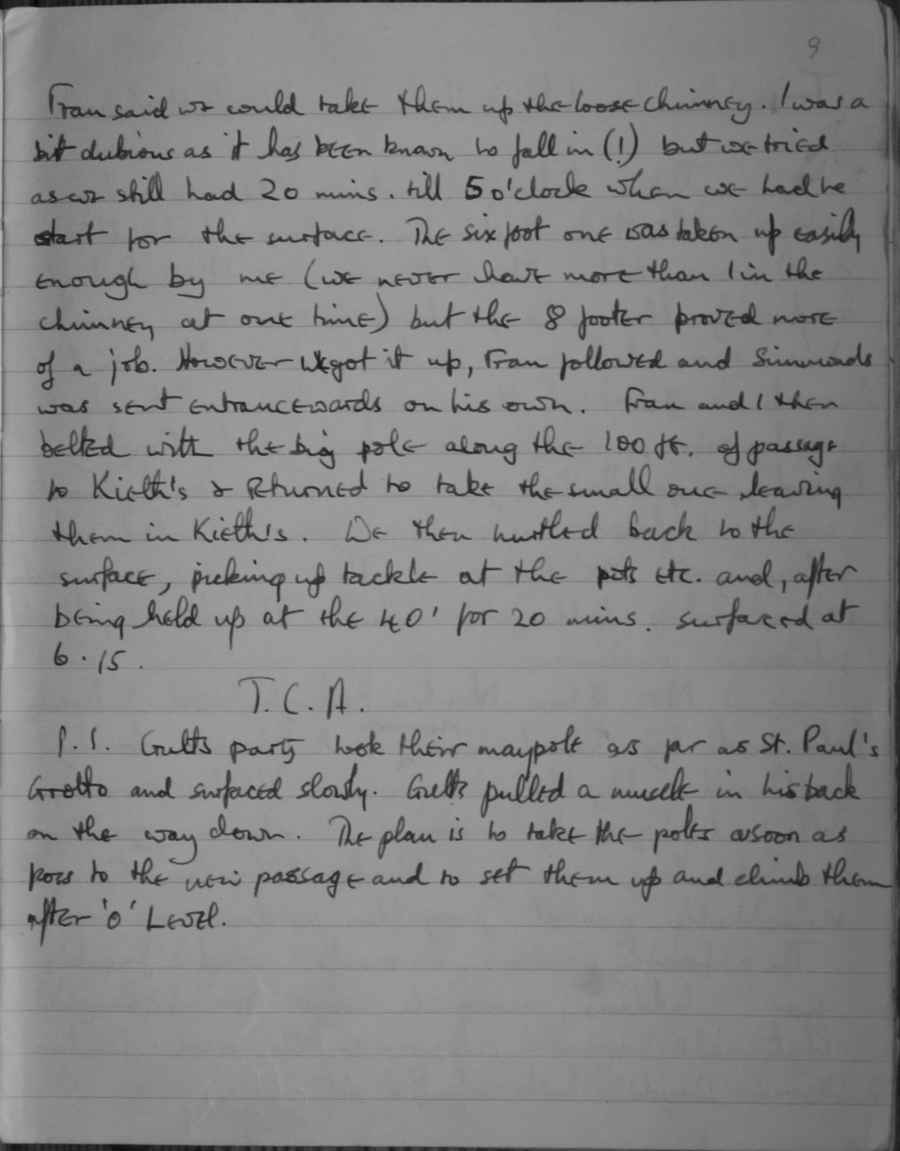 9
Fran said we could take them up the loose chimney. I was a
bit dubious as it has been known to fall in (!) but we tried
as we still had 20 mins. till 5 o'clock when we had to
start for the surface. The six foot one was taken up easily
enough by me (we never have more than 1 in the
chimney at one time) but the 8 footer proved more
of a job. However we got it up, Fran followed and Simmonds
was sent entrancewards on his own. Fran and I then
belted with the big pole along the 100 ft. of passage
to Kieth's & returned to take the small one leaving
them in Kieth's. We then hurtled back to the
surface, picking up tackle at the pots etc. and, after
being held up at the 40' for 20 mins. surfaced at
6.15.
T.C.A.
P.S. party took their maypole as far as St. Paul's
Grotto and surfaced slowly. pulled a muscle in his back
on the way down. The plan is to take the poles as soon as
poss to the new passage and to set them up and climb them
after 'O' Level.